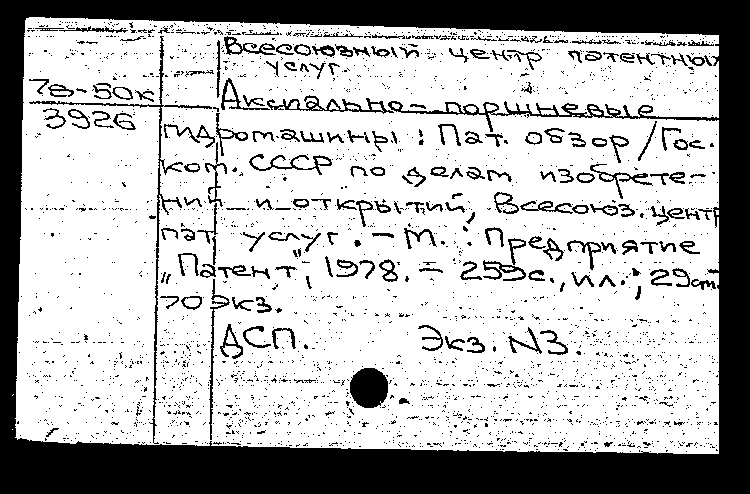 Всесоюзный центр патентных
услуг.
78-50к
Аксиально-поршневые
3926
гидромашины: Пат. обзор / Гос.
ком. СССР по делам изобрете-
ний и открытий, Всесоюз. центр
пат. услуг. – М. : Предприятие
„Патент", 1978. – 259с., ил.; 29см.
70 экз.
ДСП. Экз. N3.